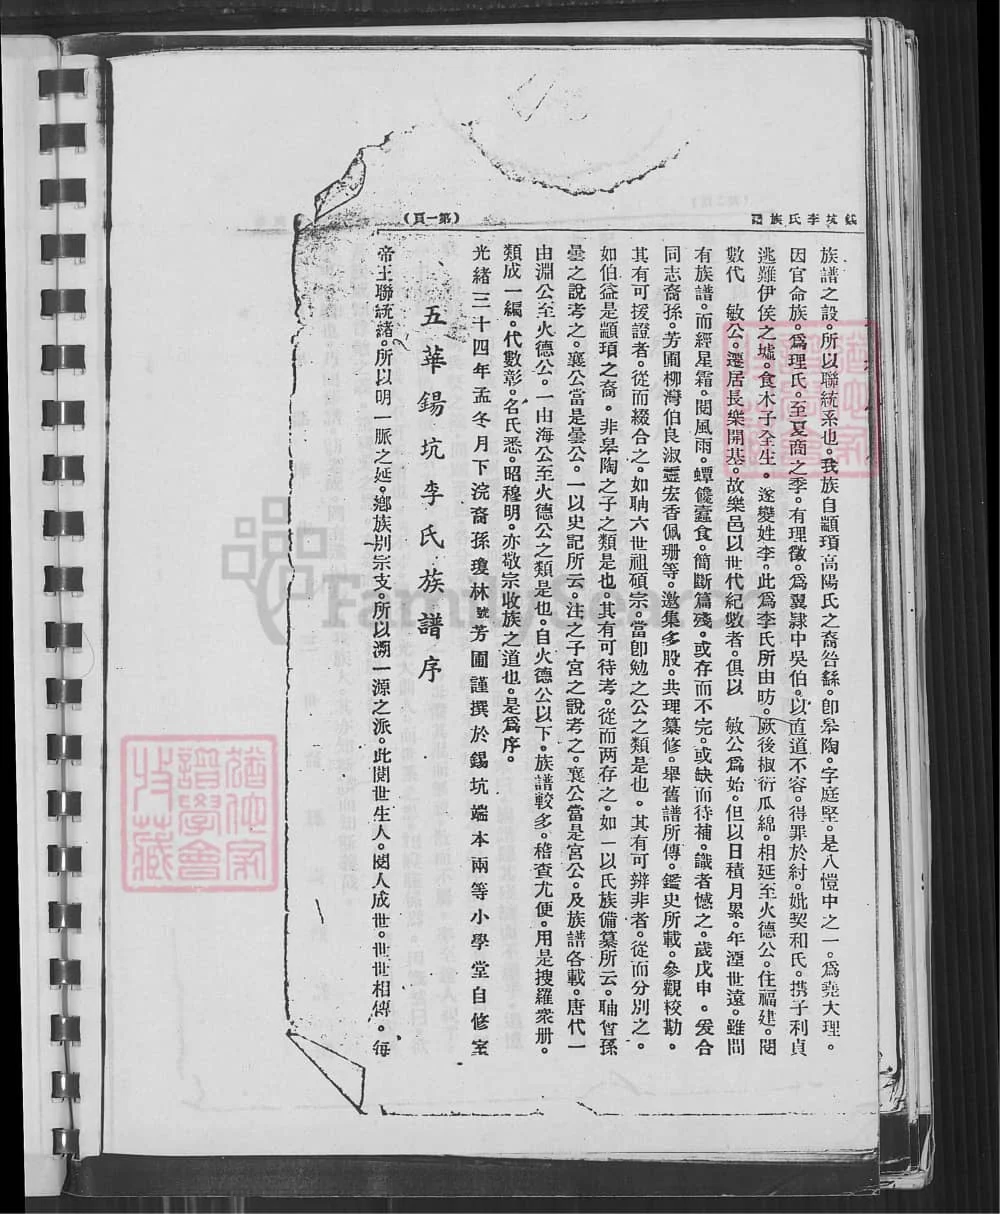 錫坑李氏族譜
(第一頁)
族譜之設。所以聯統系也。我族自顓頊高陽氏之裔咎繇。卽皋陶。字庭堅。是八愷中之一。爲堯大理。
因官命族。爲理氏。至夏商之季。有理徵。爲翼隸中吳伯。以直道不容。得罪於紂。妣契和氏。携子利貞
逃難伊侯之墟。食木子全生。遂變姓李。此爲李氏所由昉。厥後椒衍瓜綿。相延至火德公。住福建。閱
數代 敏公。遷居長樂開基。故樂邑以世代紀數者。俱以 敏公爲始。但以日積月累。年湮世遠。雖間
有族譜。而經星霜。閱風雨。蟫饞蠹食。簡斷篇殘。或存而不完。或缺而待補。識者憾之。歲戊申。爰合
同志裔孫。芳圃柳灣伯良淑靈宏香佩珊等。邀集多股。共理纂修。舉舊譜所傳。鑑史所載。參觀校勘。
其有可援證者。從而綴合之。如聃六世祖碩宗。當卽勉之公之類是也。其有可辨非者。從而分別之。
如伯益是顓頊之裔。非皋陶之子之類是也。其有可待考。從而兩存之。如一以氏族備纂所云。聃曾孫
曇之說考之。襄公當是曇公。一以史記所云。注之子宮之說考之。襄公當是宮公。及族譜各載。唐代一
由淵公至火德公。一由海公至火德公之類是也。自火德公以下。族譜較多。稽查尤便。用是搜羅衆册。
類成一編。代數彰。名氏悉。昭穆明。亦敬宗收族之道也。是爲序。
光緒三十四年孟冬月下浣裔孫瓊林號芳圃謹撰於錫坑端本兩等小學堂自修室
五華錫坑李氏族譜序
帝王聯統緒。所以明一脈之延。鄉族別宗支。所以溯一源之派。此閱世生人。閱人成世。世世相傳。每
FamilySearch